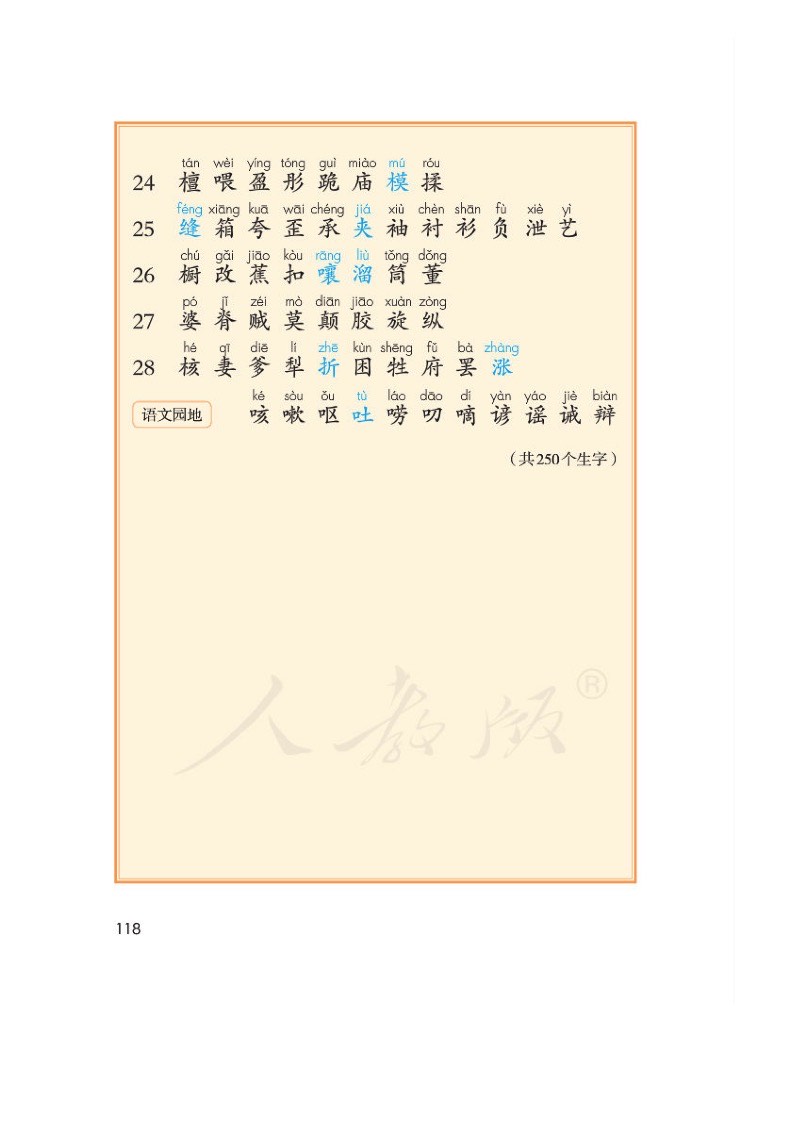 tán wèi yíng tóng guì miào mú róu
24 檀 喂 盈 彤 跪 庙 模 揉
féng xiāng kuā wāi chéng jiá xiù chèn shān fù xiè yì
25 缝 箱 夸 歪 承 夹 袖 衬 衫 负 泄 艺
chú gǎi jiāo kòu rāng liù tǒng dǒng
26 橱 改 蕉 扣 嚷 溜 筒 董
pó jǐ zéi mò diān jiāo xuàn zòng
27 婆 脊 贼 莫 颠 胶 旋 纵
hé qī diē lí zhē kùn shēng fǔ bà zhàng
28 核 妻 爹 犁 折 困 牲 府 罢 涨
ké sòu ǒu tù láo dāo dí yàn yáo jiè biàn
语文园地 咳 嗽 呕 吐 唠 叨 嘀 谚 谣 诫 辩
(共250个生字)
人教版®
118